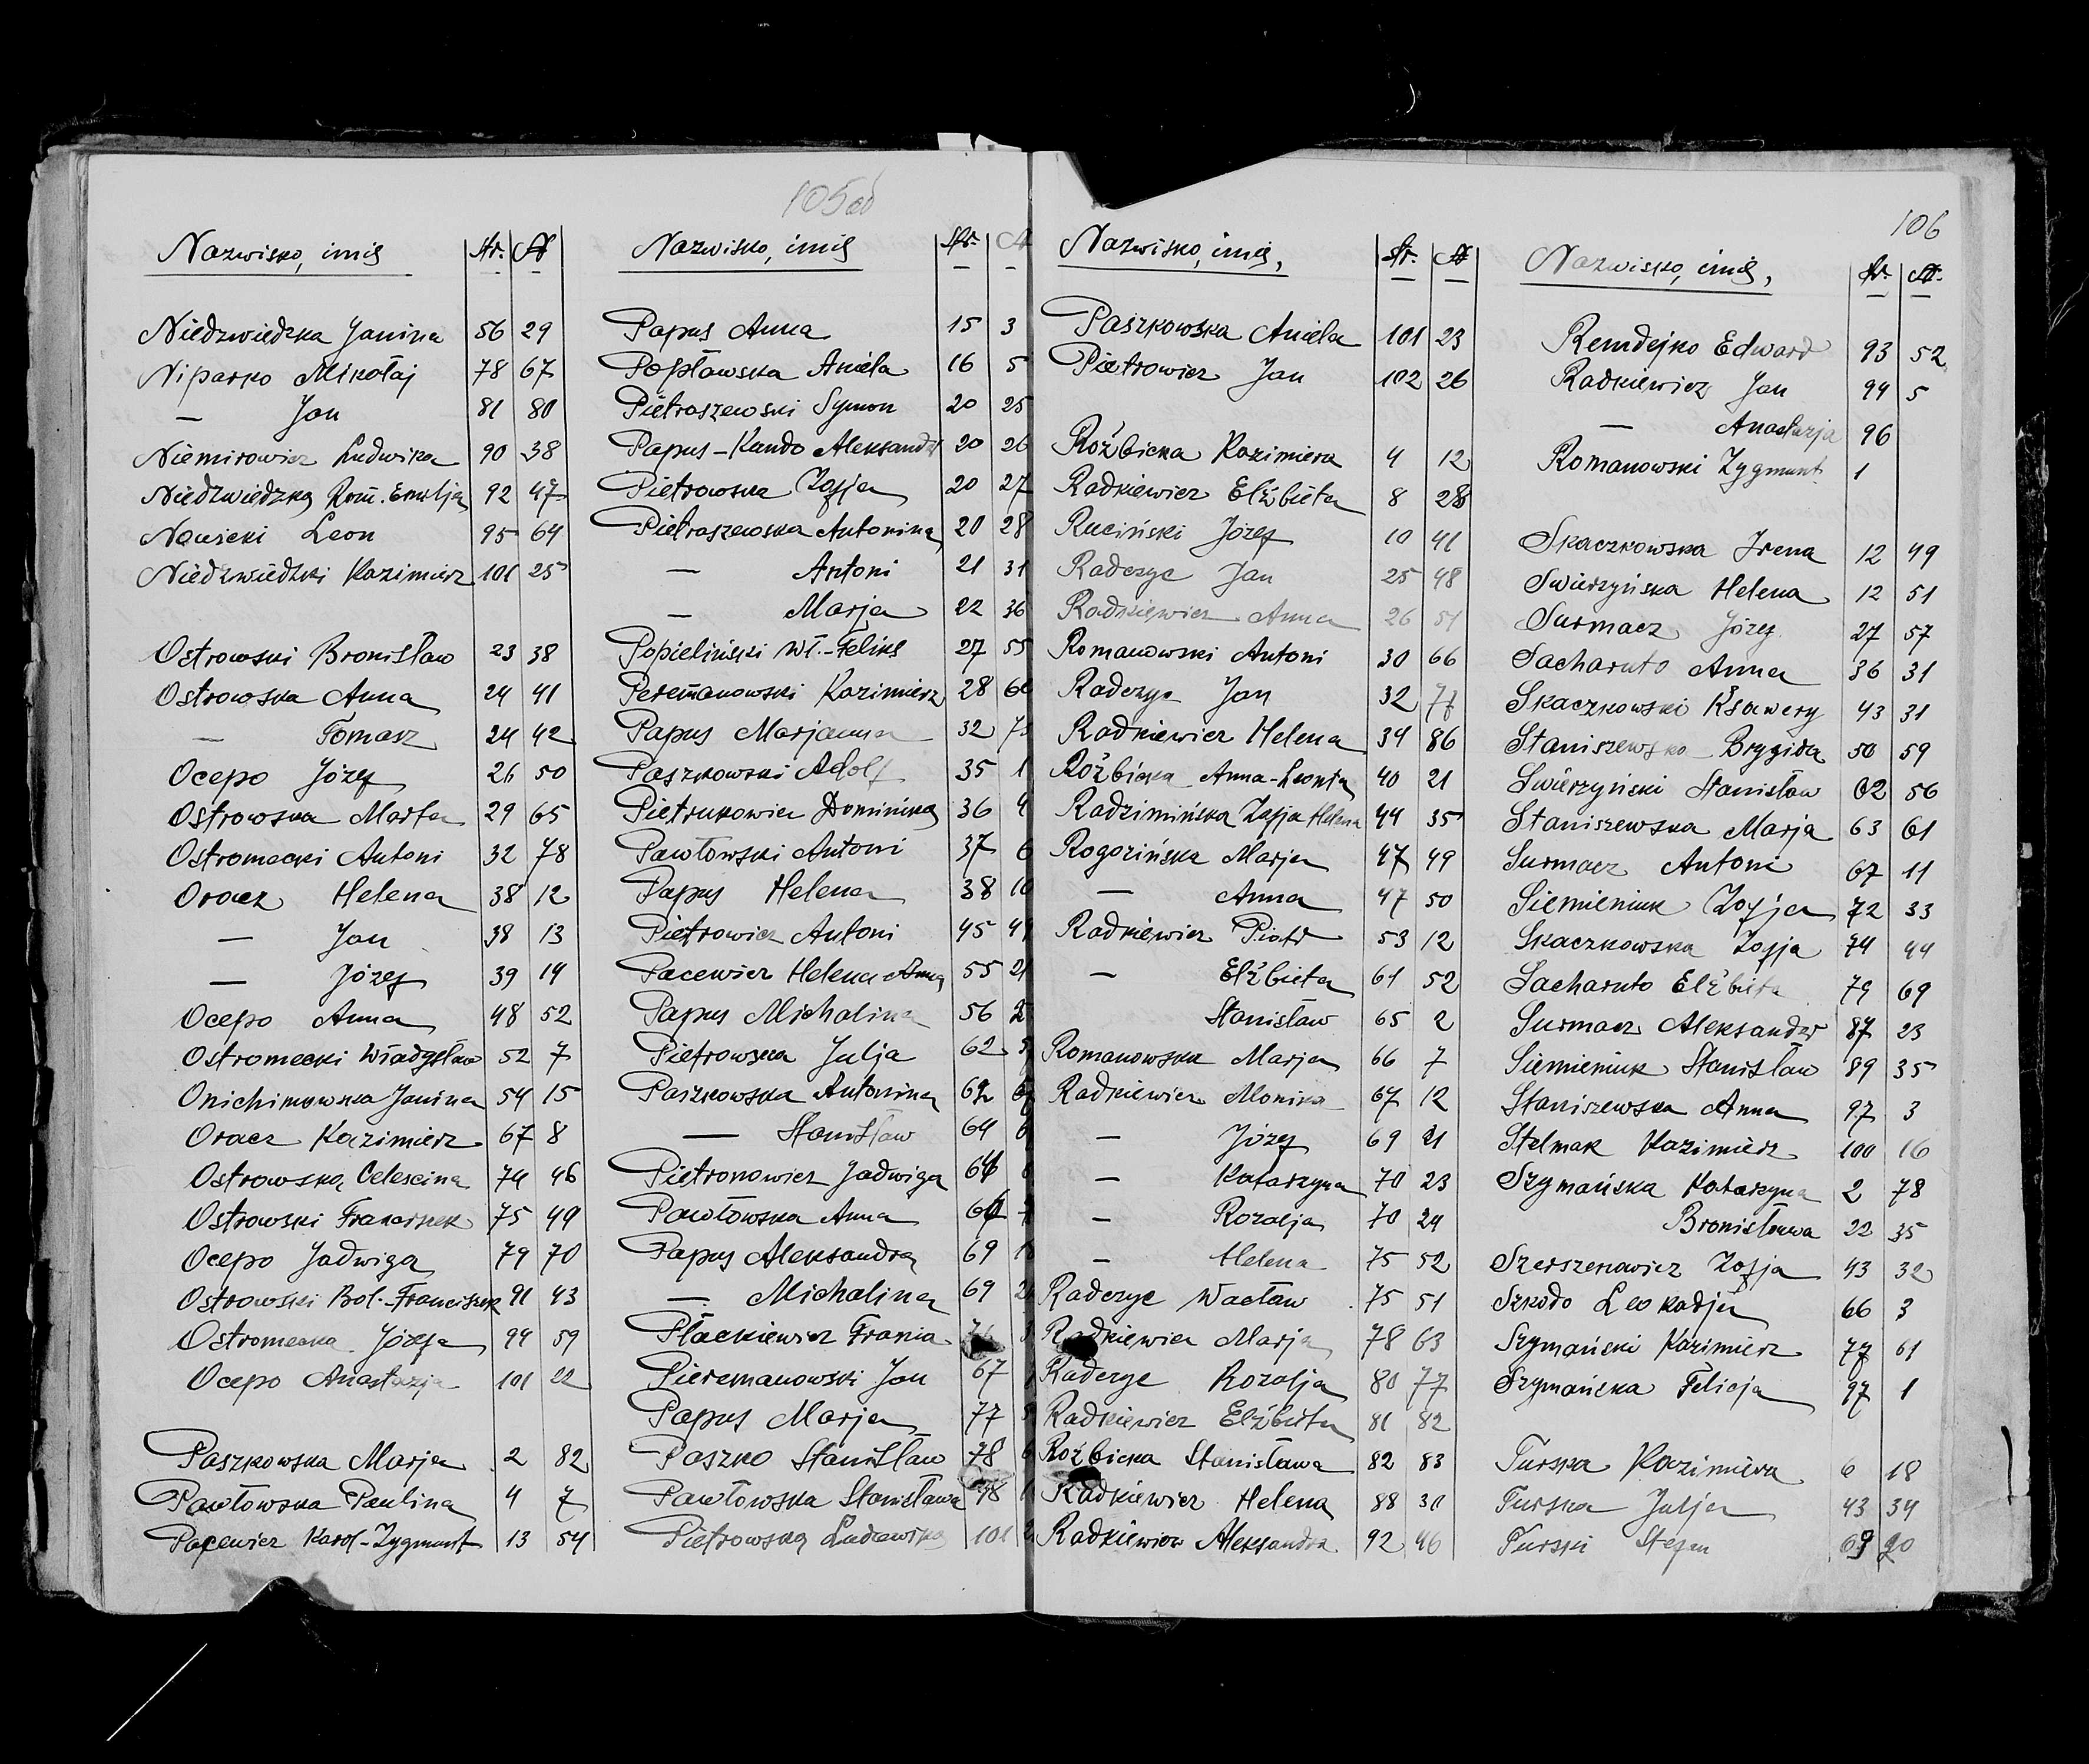 105 ab
Nazwisko, imię Str. №
Niedzwiedzka Janina 56 29
Niparko Mikołaj 78 67
— Jan 81 80
Niemirowicz Ludwika 90 38
Niedzwiedzka Rom. Emilja 92 47
Nowicki Leon 95 64
Niedzwiedzki Kazimierz 101 25
Ostrowski Bronisław 23 38
Ostrowska Anna 24 41
— Tomasz 24 42
Ocepo Józef 26 50
Ostrowska Marta 29 65
Ostromecki Antoni 32 78
Oracz Helena 38 12
— Jan 38 13
— Józef 39 14
Ocepo Anna 48 52
Ostromecki Władysław 52 7
Onichimowska Janina 54 15
Oracz Kazimierz 67 8
Ostrowska Celescina 74 46
Ostrowski Franciszek 75 49
Ocepo Jadwiga 79 70
Ostrowski Bol.-Franciszek 91 43
Ostromecka Józefa 94 59
Ocepo Anastazja 101 22
Paszkowska Marja 2 82
Pawłowska Paulina 4 7
Pacewicz Karol-Zygmunt 13 54
Nazwisko, imię Str. №
Papus Anna 15 3
Popławska Aniela 16 5
Pietraszewski Symon 20 25
Papus-Kundo Aleksandr 20 26
Pietrowska Zofja 20 27
Pietraszewska Antonina 20 28
— Antoni 21 31
— Marja 22 36
Popieliński Wł.-Feliks 27 55
Peremanowski Kazimierz 28
Papus Marjanna 32
Paszkowski Adolf 35 1
Pietrukowicz Dominika 36 4
Pawłowski Antoni 37 6
Papus Helena 38 10
Pietrowicz Antoni 45
Pacewicz Helena Anna 55
Papus Michalina 56
Pietrowska Julja 62
Paszkowska Antonina
— Stanisław 64
Pietronowicz Jadwiga
Pawłowska Anna
Papus Aleksandra 69
— Michalina 69
Płackiewicz Frania
Pieremanowski Jan 67
Papus Marja 77
Paszko Stanisław 78
Pawłowska Stanisława 98
Pietrowska Ludowika 101
106
Nazwisko, imię, Str. №
Paszkowska Aniela 101 23
Pietrowicz Jan 102 26
Rożbicka Kazimiera 4 12
Radkiewicz Elżbieta 8 28
Ruciński Józef 10 41
Radczyc Jan 25 48
Radkiewicz Anna 26 51
Romanowski Antoni 30 66
Radczyc Jan 32 77
Radkiewicz Helena 34 86
Rożbicka Anna-Leonia 40 21
Radzimińska Zofja Helena 44 35
Rogozińska Marja 47 49
— Anna 47 50
Radkiewicz Piotr 53 12
— Elżbieta 61 52
Stanisław 65 2
Romanowska Marja 66 7
Radkiewicz Monika 67 12
— Józef 69 21
— Katarzyna 70 23
— Rozalja 70 24
— Helena 75 52
Radczyc Wacław 75 51
Radkiewicz Marja 78 63
Radczyc Rozalja 80 77
Radkiewicz Elżbieta 81 82
Rożbicka Stanisława 82 83
Radkiewicz Helena 88 30
Radkiewicz Aleksandra 92 46
Nazwisko, imię, Str. №
Remdejko Edward 93 52
Radkiewicz Jan 94 5
— Anastazja 96
Romanowski Zygmunt 1
Skaczkowska Irena 12 49
Swierzyńska Helena 12 51
Surmacz Józef 27 57
Sacharuto Anna 36 31
Skaczkowski Ksawery 43 31
Staniszewska Brygida 50 59
Swierzyński Stanisław 62 56
Staniszewska Marja 63 61
Surmacz Antoni 67 11
Siemieniuk Zofja 72 33
Skaczkowska Zofja 74 44
Sacharuto Elżbieta 79 69
Surmacz Aleksander 87 23
Siemieniuk Stanisław 89 35
Staniszewska Anna 97 3
Stelmak Kazimierz 100 16
Szymańska Katarzyna 2 78
Bronisława 22 35
Szerszenowicz Zofja 43 32
Szkodo Leokadja 66 3
Szymański Kazimierz 77 61
Szymańska Felicja 97 1
Turska Kazimiera 6 18
Turska Julja 43 34
Turski Stefan 69 20